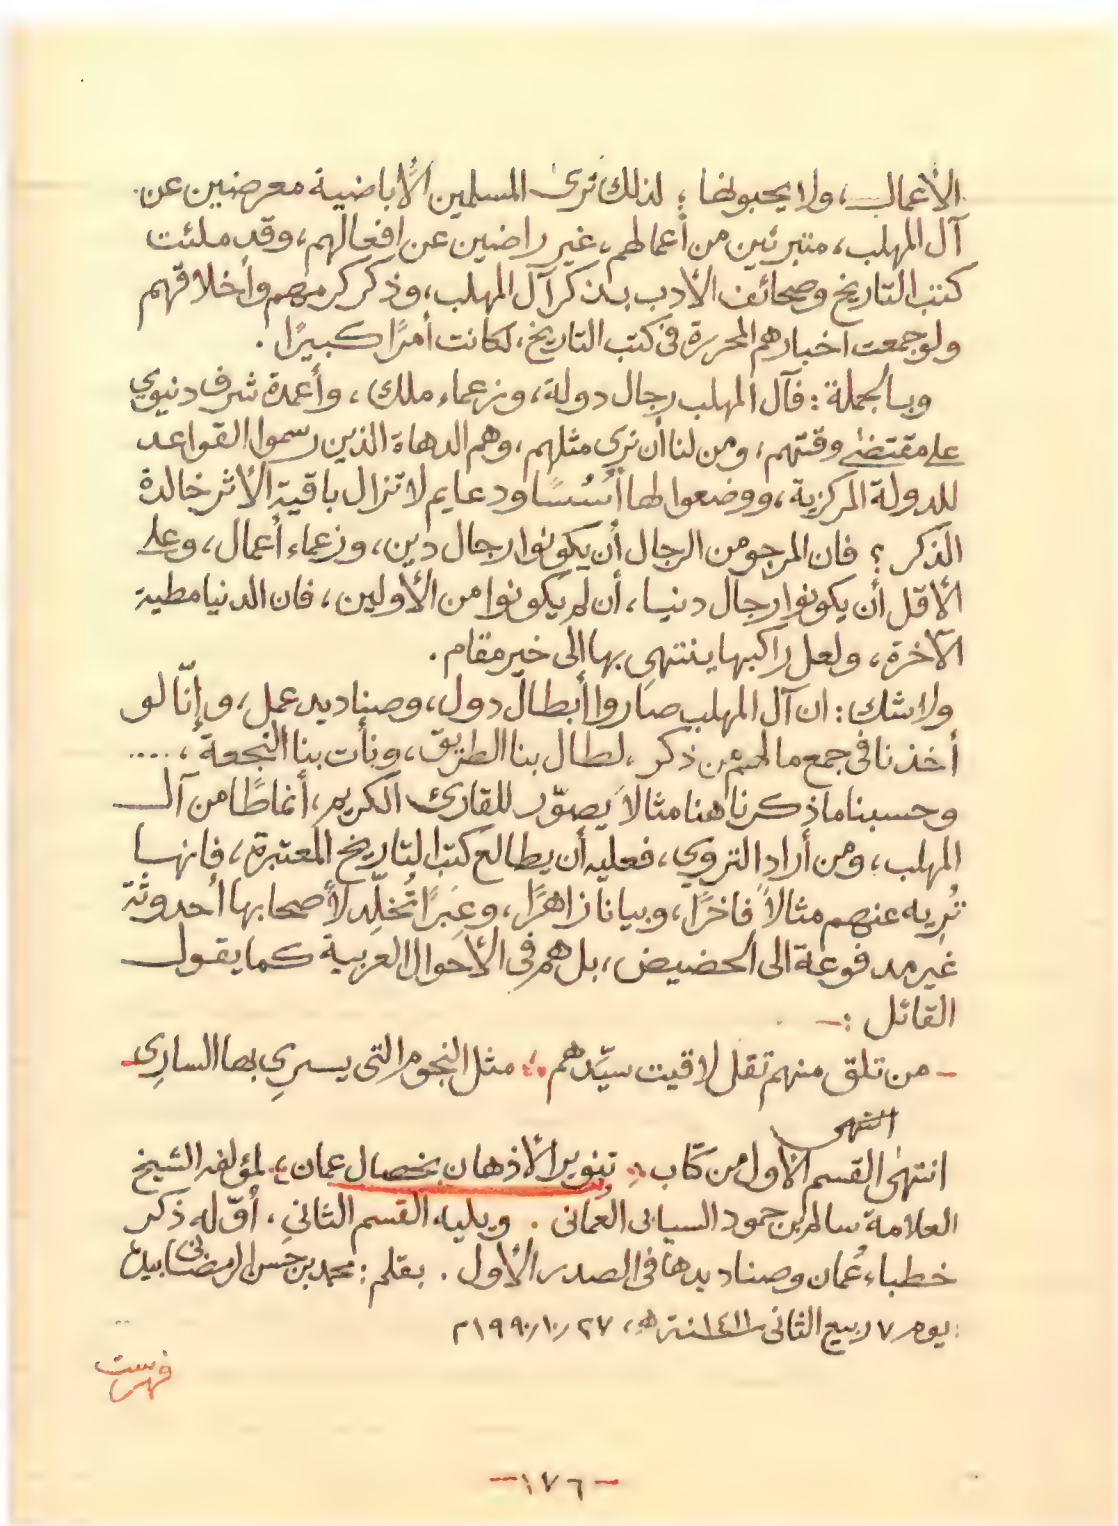 الأعمال، ولا يحبونها ؛ لذلك ترى المسلمين الأباضية معرضين عن
آل المهلب، متبرئين من أعمالهم، غير راضين عن افعالهم، وقد ملئت
كتب التاريخ وصحائف الأدب بذكر آل المهلب، وذكر كرمهم وأخلاقهم
ولو جمعت اخبارهم المحررة فى كتب التاريخ، لكانت أمرًا كبيرًا .
وبالجملة : فآل المهلب رجال دولة، وزعماء ملك، وأعمدة شرف دنيوي
على مقتضى وقتهم، ومن لنا أن نرى مثلهم، وهم الدهاة الذين رسموا القواعد
للدولة المركزية، ووضعوا لها أُسُسًا ودعايم لا تزال باقية الأثر خالدة
الذكر ؟ فان المرجو من الرجال أن يكونوا رجال دين، وزعماء أعمال، وعلى
الأقل أن يكونوا رجال دنيا، أن لم يكونوا من الأولين، فان الدنيا مطية
الآخرة، ولعل راكبها ينتهي بها إلى خير مقام .
ولا شك : ان آل المهلب صاروا أبطال دول، وصناديد عمل، وإنّا لو
أخذنا فى جمع ما لهم من ذكر، لطال بنا الطريق، ونأت بنا النجعة، .....
وحسبنا ما ذكرنا هنا مثالاً يصوّر للقارئ الكريم، أنماطًا من آل
المهلب، ومن أراد التروي، فعليه أن يطالع كتب التاريخ المعتبرة، فانها
تُريه عنهم مثالاً فاخرًا، وبيانا زاهرًا، وعِبَرًا تُخلِّد لأصحابها أحدوثة
غير مدفوعة الى الحضيض، بل هم فى الأحوال العربية كما يقول
القائل :ـ
ـ من تلق منهم تقل لاقيت سيّدهم ؛ مثل النجوم التى يسري بها الساري ـ
انتهى
انتهى القسم الأول من كتاب : تنوير الأذهان بخصال عمان ؛ لمؤلفه الشيخ
العلامة سالم بن حمود السيابى العُمانى . ويليه القسم الثاني، أوّله ذكر
خطباء عُمان وصناديدها فى الصدر الأول . بقلم : محمد بن حسن الرمضانى بيده
يوم ٧ ربيع الثانى سنة ١٤١١ ه، ٢٧/١٠/١٩٩٠م
فهرست
ـ١٧٦ـ